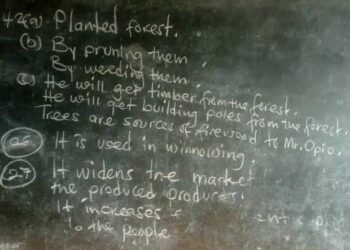 42(a) Planted forest.
(b) By pruning them.
By weeding them.
(c) He will get timber from the forest.
He will get building poles from the forest.
Trees are sources of firewood to Mr. Opio.
26 It is used in winnowing.
27 It widens the market
the produced products.
It increases
to the people.